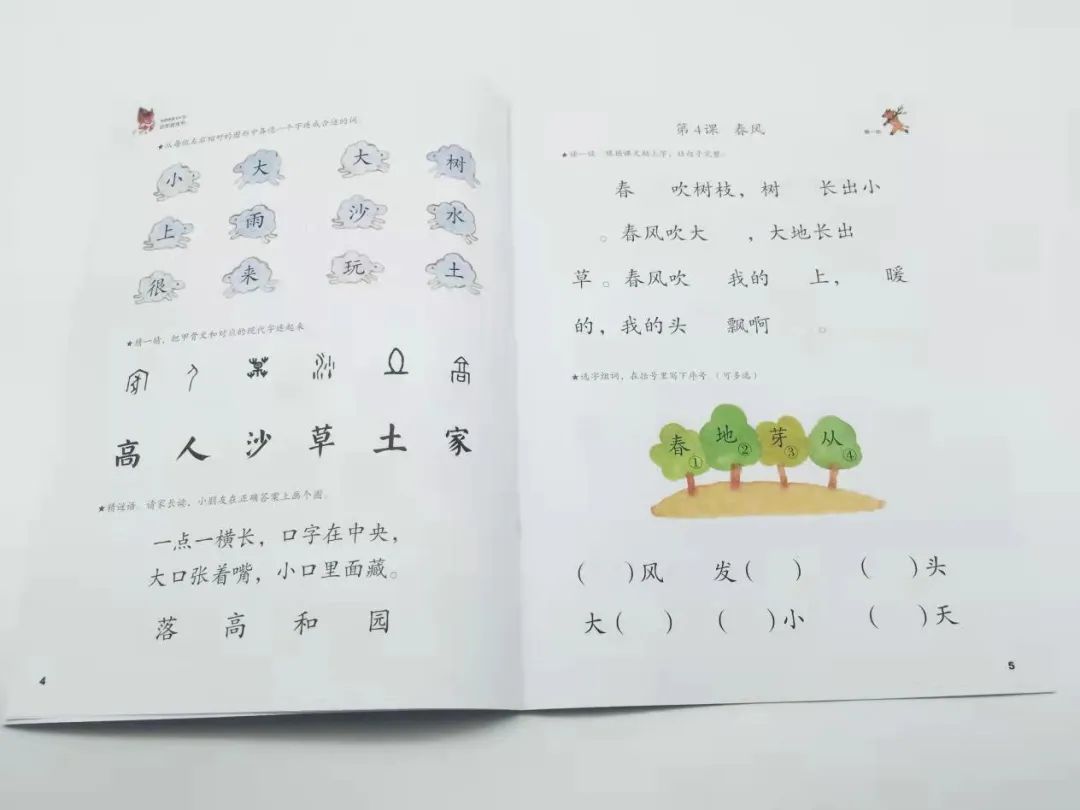 ★从每组左右相对的图形中各选一个字连成合适的词。
小 大 大 树
上 雨 沙 水
很 来 玩 土
★猜一猜，把甲骨文和对应的现代字连起来
高 人 沙 草 土 家
★猜谜语。请家长读，小朋友在正确答案上画个圈。
一点一横长，口字在中央，
大口张着嘴，小口里面藏。
落 高 和 园
4
第4课 春风
★读一读 根据课文贴上字，让句子完整。
春 吹树枝，树 长出小
。春风吹大 ，大地长出
草。春风吹 我的 上， 暖
的，我的头 飘啊 。
★选字组词，在括号里写下序号（可多选）
春① 地② 芽③ 从④
( )风 发( ) ( )头
大( ) ( )小 ( )天
5